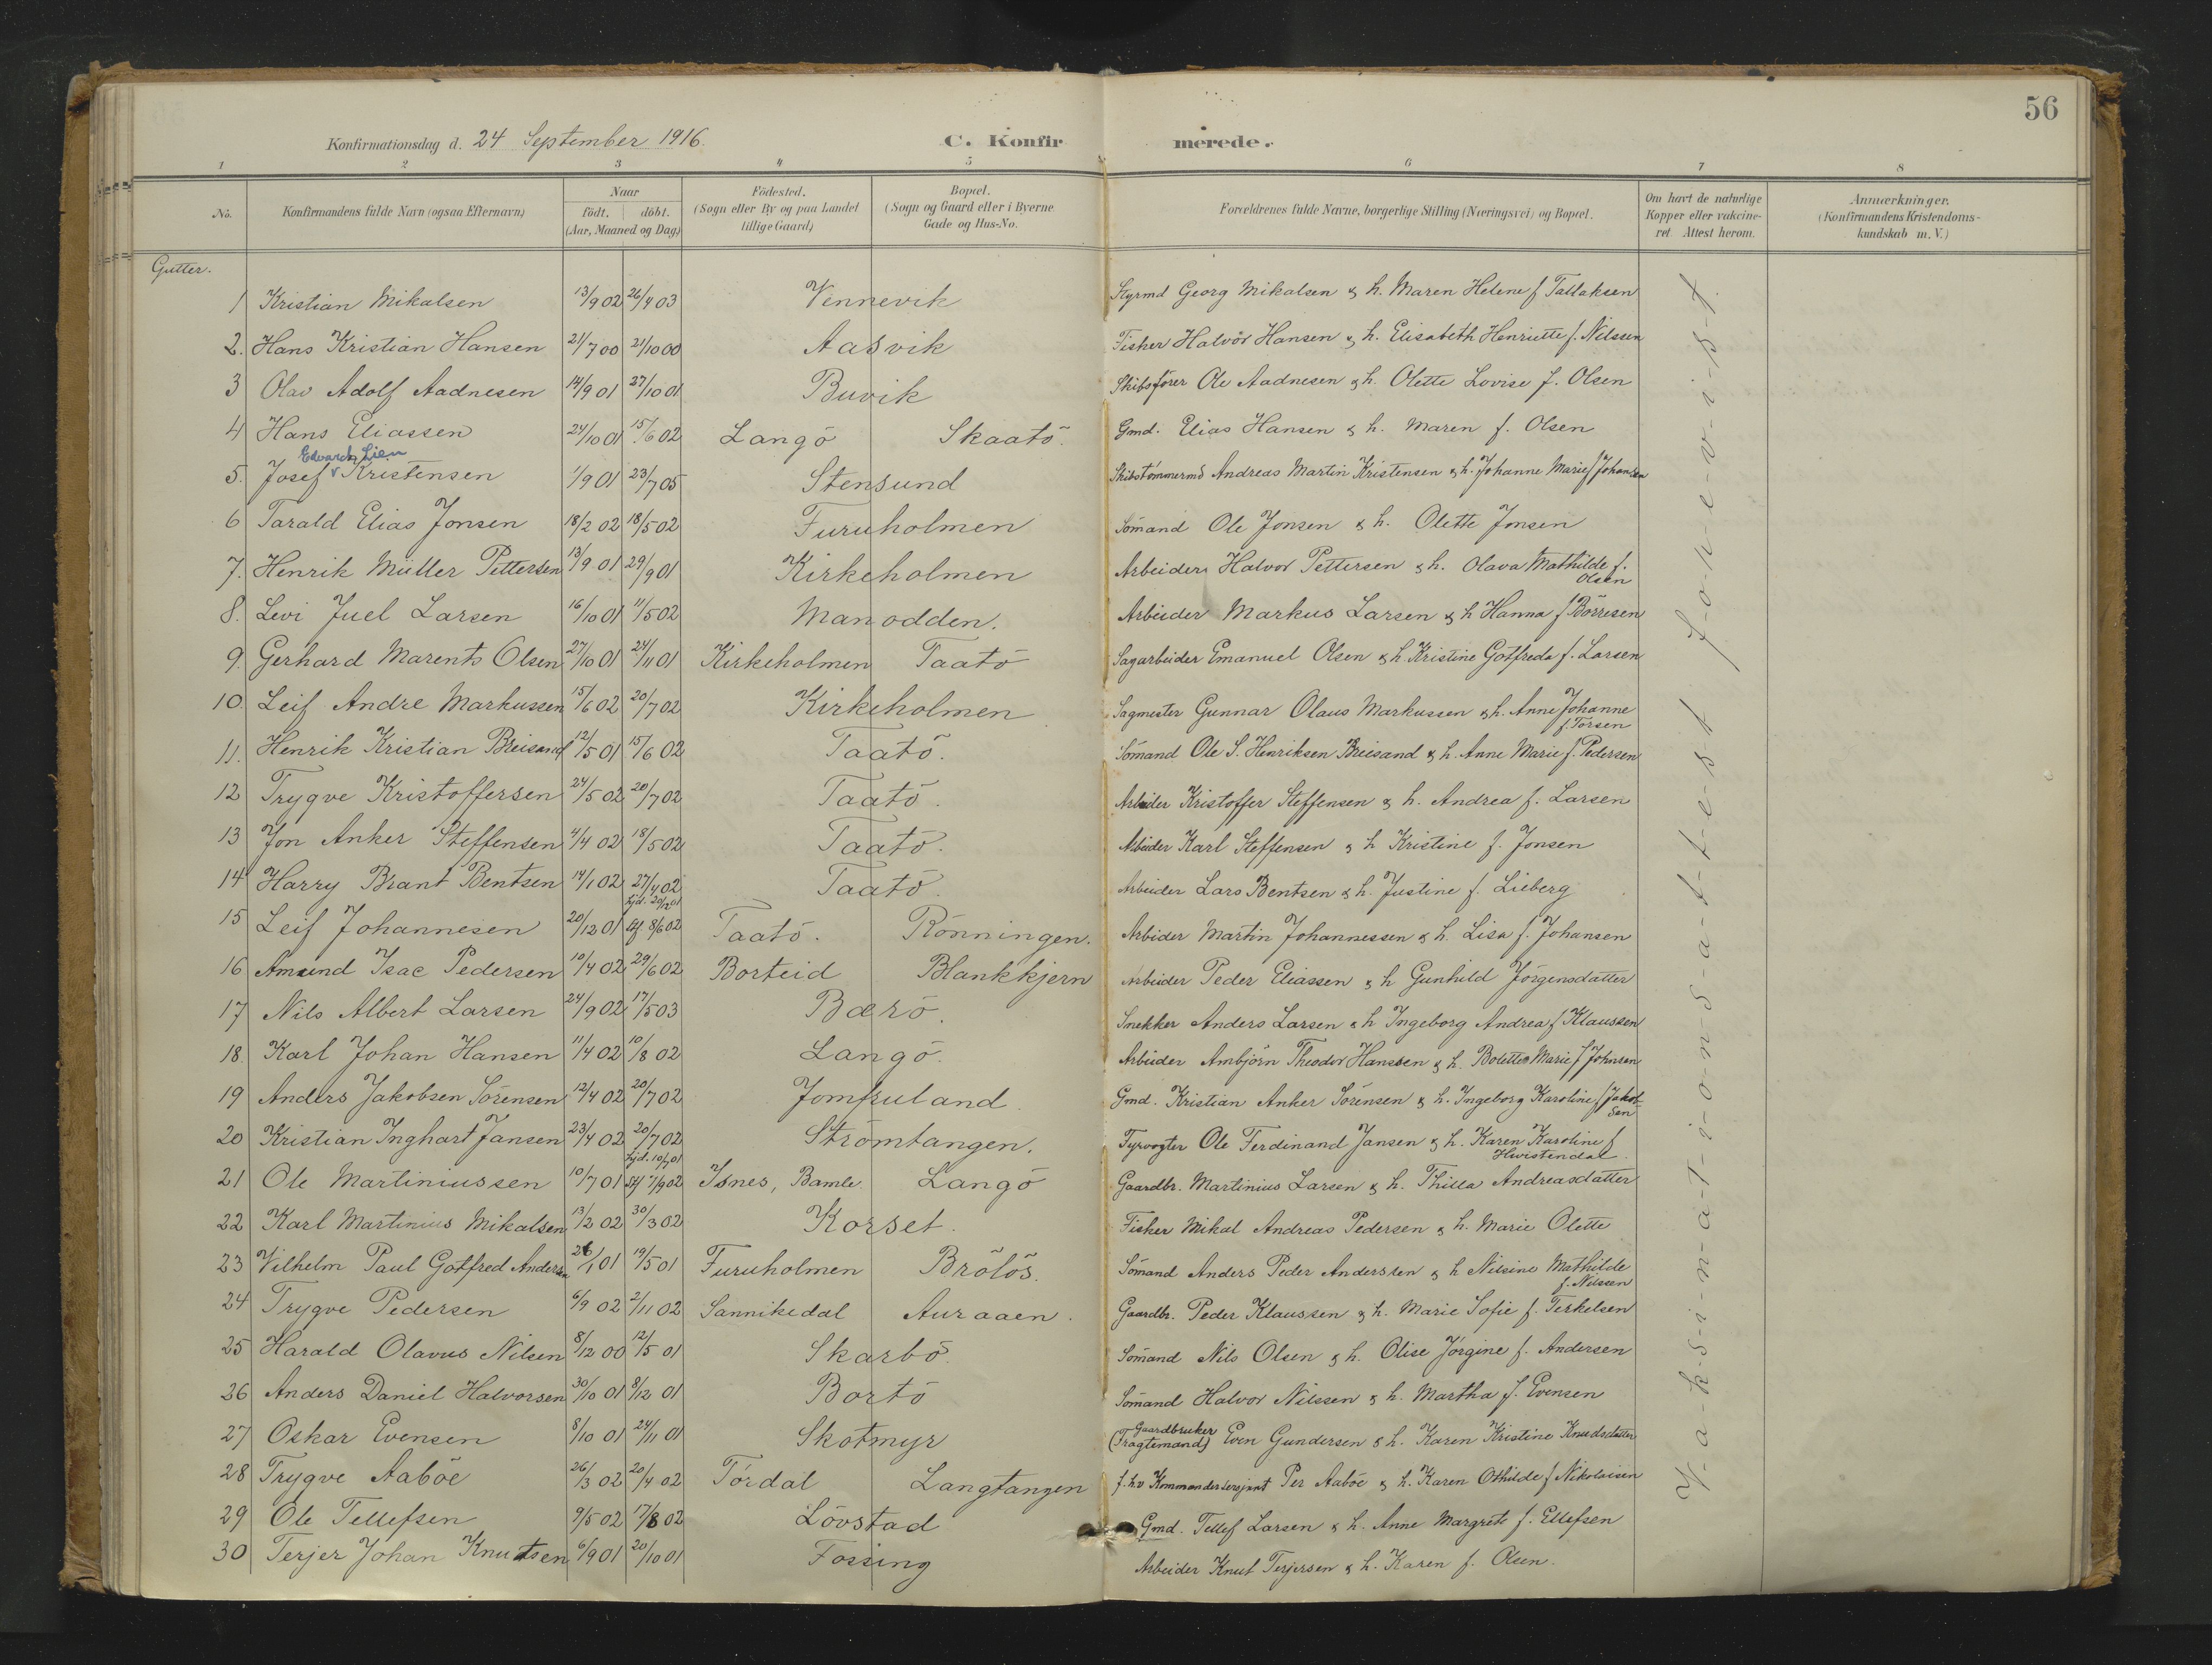 56
Konfirmationsdag d. 24 September 1916.
C. Konfirmerede.
1 2 3 4 5 6 7 8
No.
Konfirmandens fulde Navn (ogsaa Efternavn)
Naar
født. døbt.
(Aar, Maaned og Dag)
Fødested.
(Sogn eller By og paa Landet
tillige Gaard)
Bopæl.
(Sogn og Gaard eller i Byerne
Gade og Hus-No.
Forældrenes fulde Navne, borgerlige Stilling (Næringsvei) og Bopæl.
Om havt de naturlige
Kopper eller vakcine-
ret Attest herom.
Anmærkninger.
(Konfirmandens Kristendoms-
kundskab m. V.)
Gutter.
1 Kristian Mikalsen 13/9 02 26/4 03 Vennevik Styrmd Georg Mikalsen & h. Maren Helene f Tallaksen
2. Hans Kristian Hansen 21/7 00 21/10 00 Aasvik Fisker Halvor Hansen & h. Elisabeth Henriette f. Nilssen
3 Olav Adolf Aadnesen 14/9 01 27/10 01 Buvik Skibsfører Ole Aadnesen & h. Olette Lovise f. Olsen
4 Hans Eliassen 24/10 01 15/6 02 Langö Skaatö. Gmd. Elias Hansen & h. Maren f. Olsen
Edvard Lien
5. Josef Kristensen 1/9 01 23/7 05 Stensund Skibstömmermd Andreas Martin Kristensen & h. Johanne Marie f Johansen
6 Tarald Elias Jonsen 18/2 02 18/5 02 Furuholmen Sömand Ole Jonsen & h. Olette Jonsen
7. Henrik Müller Pettersen 13/9 01 29/9 01 Kirkeholmen Arbeider Halvor Pettersen & h. Olava Mathilde f. Olsen
8. Levi Juel Larsen 16/10 01 11/5 02 Manodden. Arbeider Markus Larsen & h Hanna f Börresen
9. Gerhard Marents Olsen 27/10 01 24/11 01 Kirkeholmen Taatö Sagarbeider Emanuel Olsen & h. Kristine Gotfreda f. Larsen
10. Leif Andre Markussen 15/6 02 20/7 02 Kirkeholmen Sagmester Gunnar Olaus Markussen & h. Anne Johanne f Torsen
11. Henrik Kristian Breisand 12/5 01 15/6 02 Taatö. Sömand Ole S. Henriksen Breisand & h. Anne Marie f. Pedersen
12 Trygve Kristoffersen 24/5 02 20/7 02 Taatö. Arbeider Kristoffer Steffensen & h. Andrea f. Larsen
13 Jon Anker Steffensen 4/4 02 18/5 02 Taatö. Arbeider Karl Steffensen & h Kristine f. Jonsen
14 Harry Brant Bentsen 14/1 02 27/4 02 Taatö. Arbeider Lars Bentsen & h. Justine f. Lieberg
hjd. 20/12 01
15 Leif Johannesen 20/12 01 stf 8/6 02 Taatö. Rönningen. Arbeider Martin Johannessen & h. Lisa f. Johansen
16 Amund Isac Pedersen 10/4 02 29/6 02 Borteid Blankkjern Arbeider Peder Eliassen & h Gunhild Jörgensdatter
17 Nils Albert Larsen 24/9 02 17/5 03 Bærö. Snekker Anders Larsen & h Ingeborg Andrea f Klaussen
18. Karl Johan Hansen 11/4 02 10/8 02 Langö. Arbeider Ambjörn Theodor Hanssen & h. Bolette Marie f Johnsen
19 Anders Jakobsen Sörensen 12/4 02 20/7 02 Jomfruland Gmd. Kristian Anker Sörensen & h. Ingeborg Karoline f Jakobsen
20 Kristian Inghart Jansen 23/4 02 20/7 02 Strömtangen. Fyrvogter Ole Ferdinand Jansen & h. Karen Karoline f Hvistendal
hjd. 10/7 01
21 Ole Martiniussen 10/7 01 stf 1/9 02 Isnes, Bamle. Langö Gaardbr. Martinius Larsen & h. Thilla Andreasdatter
22 Karl Martinius Mikalsen 13/2 02 30/3 02 Korset. Fisker Mikal Andreas Pedersen & h. Marie Olette
23 Vilhelm Paul Gotfred Andersen 26/1 01 19/5 01 Furuholmen Brölös. Sömand Anders Peder Anderssen & h Nilsine Mathilde f. Nilssen
24 Trygve Pedersen 6/9 02 2/11 02 Sannikedal Auraaen. Gaardbr. Peder Klaussen & h. Marie Sofie f. Terkelsen
25 Harald Olavus Nilsen 8/12 00 12/5 01 Skarbö. Sömand Nils Olsen & h. Olise Jörgine f. Andersen
26 Anders Daniel Halvorsen 30/10 01 8/12 01 Bortö Sömand Halvor Nilssen & h. Martha f. Evensen
27 Oskar Evensen 8/10 01 24/11 01 Skotmyr Gaardbruker (Fragtemand) Even Gundersen & h. Karen Kristine Knudsdatter
28 Trygve Aaböe 26/3 02 20/4 02 Tördal Langtangen f.h.v Kommandersersjant Per Aaböe & h. Karen Othilde f Nikolaisen
29 Ole Tellefsen 9/5 02 17/8 02 Lövstad Gmd. Tellef Larsen & h. Anne Margrete f. Ellefsen
30 Terjer Johan Knutsen 6/9 01 20/10 01 Fossing Arbeider Knut Terjersen & h. Karen f. Olsen.
V-a-k-s-i-n-a-t-i-o-n-s-a-t-t-e-s-t f-o-r-e-v-i-s-t.